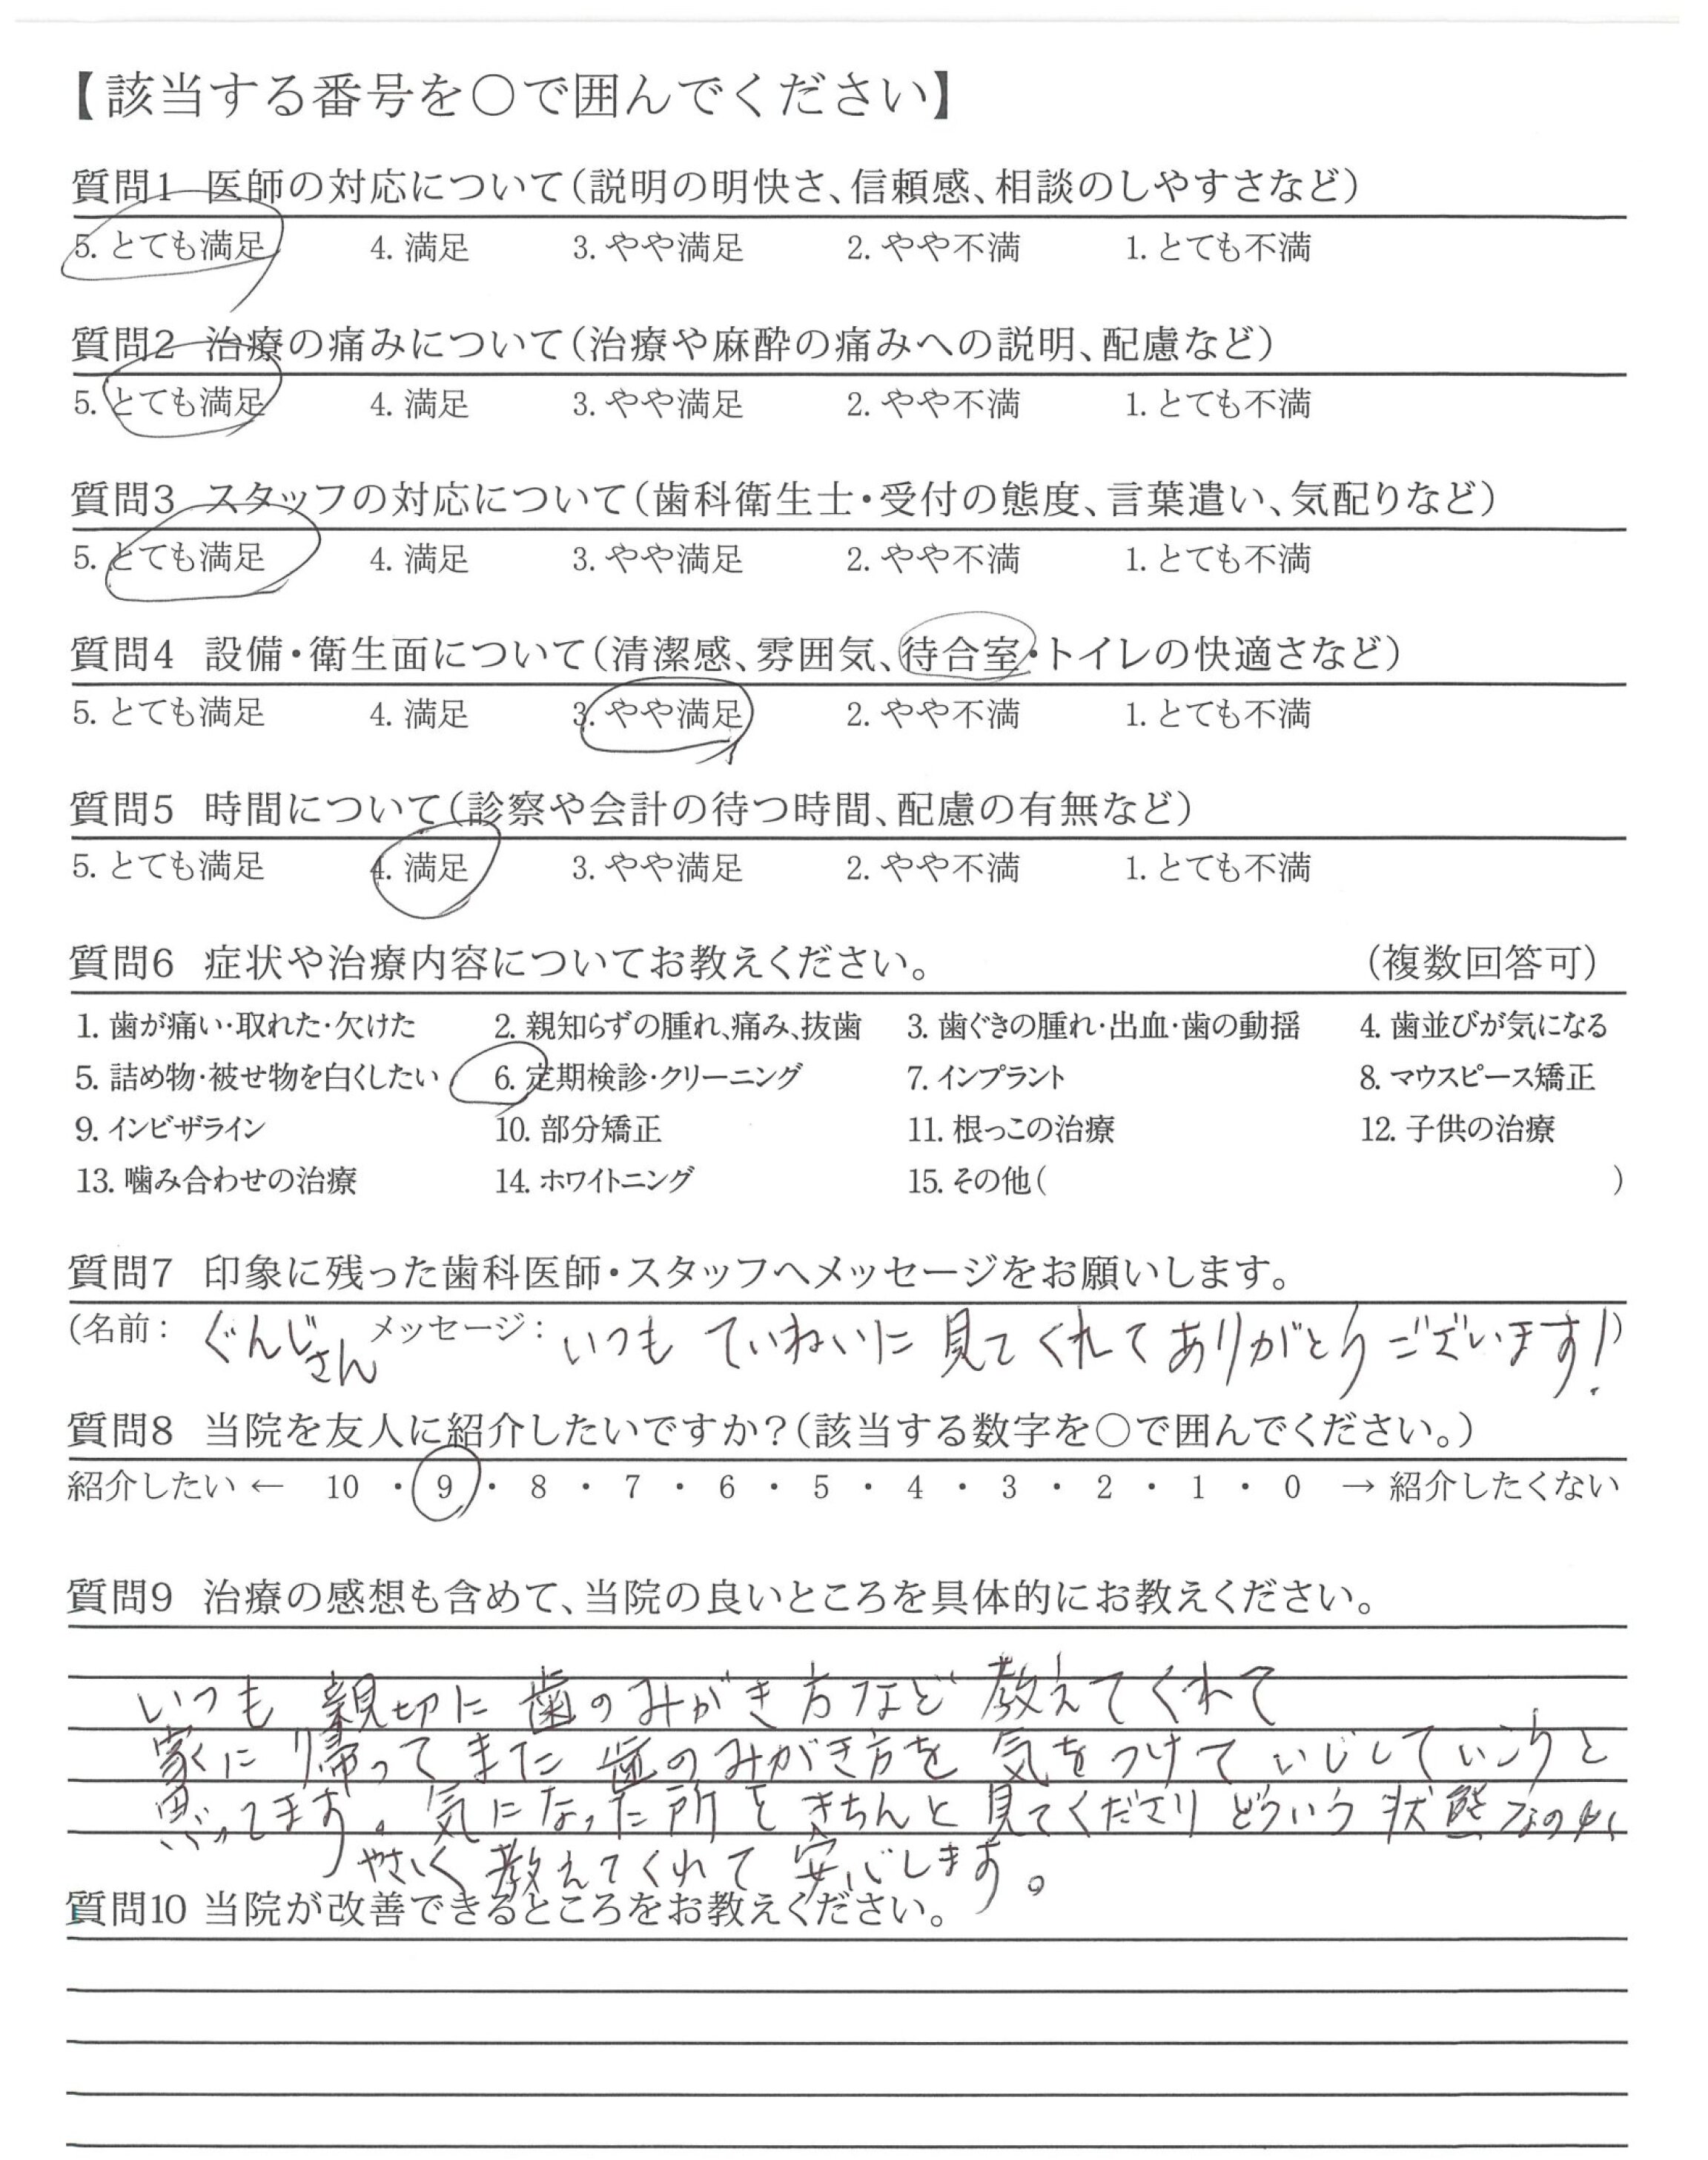 【該当する番号を〇で囲んでください】
質問1 医師の対応について(説明の明快さ、信頼感、相談のしやすさなど)
5. とても満足 4. 満足 3. やや満足 2. やや不満 1. とても不満
質問2 治療の痛みについて(治療や麻酔の痛みへの説明、配慮など)
5. とても満足 4. 満足 3. やや満足 2. やや不満 1. とても不満
質問3 スタッフの対応について(歯科衛生士・受付の態度、言葉遣い、気配りなど)
5. とても満足 4. 満足 3. やや満足 2. やや不満 1. とても不満
質問4 設備・衛生面について(清潔感、雰囲気、待合室・トイレの快適さなど)
5. とても満足 4. 満足 3. やや満足 2. やや不満 1. とても不満
質問5 時間について(診察や会計の待つ時間、配慮の有無など)
5. とても満足 4. 満足 3. やや満足 2. やや不満 1. とても不満
質問6 症状や治療内容についてお教えください。 (複数回答可)
1. 歯が痛い・取れた・欠けた 2. 親知らずの腫れ、痛み、抜歯 3. 歯ぐきの腫れ・出血・歯の動揺 4. 歯並びが気になる
5. 詰め物・被せ物を白くしたい 6. 定期検診・クリーニング 7. インプラント 8. マウスピース矯正
9. インビザライン 10. 部分矯正 11. 根っこの治療 12. 子供の治療
13. 噛み合わせの治療 14. ホワイトニング 15. その他( )
質問7 印象に残った歯科医師・スタッフへメッセージをお願いします。
(名前: ぐんじさん メッセージ: いつも ていねいに 見てくれてありがとうございます!)
質問8 当院を友人に紹介したいですか?(該当する数字を〇で囲んでください。)
紹介したい ← 10 ・ 9 ・ 8 ・ 7 ・ 6 ・ 5 ・ 4 ・ 3 ・ 2 ・ 1 ・ 0 → 紹介したくない
質問9 治療の感想も含めて、当院の良いところを具体的にお教えください。
いつも 親切に 歯のみがき方など 教えてくれて
家に帰ってまた歯のみがき方を 気をつけて いじしていこうと
思ってます。気になった所をきちんと見てくださり どういう 状態なのか
やさしく 教えてくれて 安心します。
質問10 当院が改善できるところをお教えください。